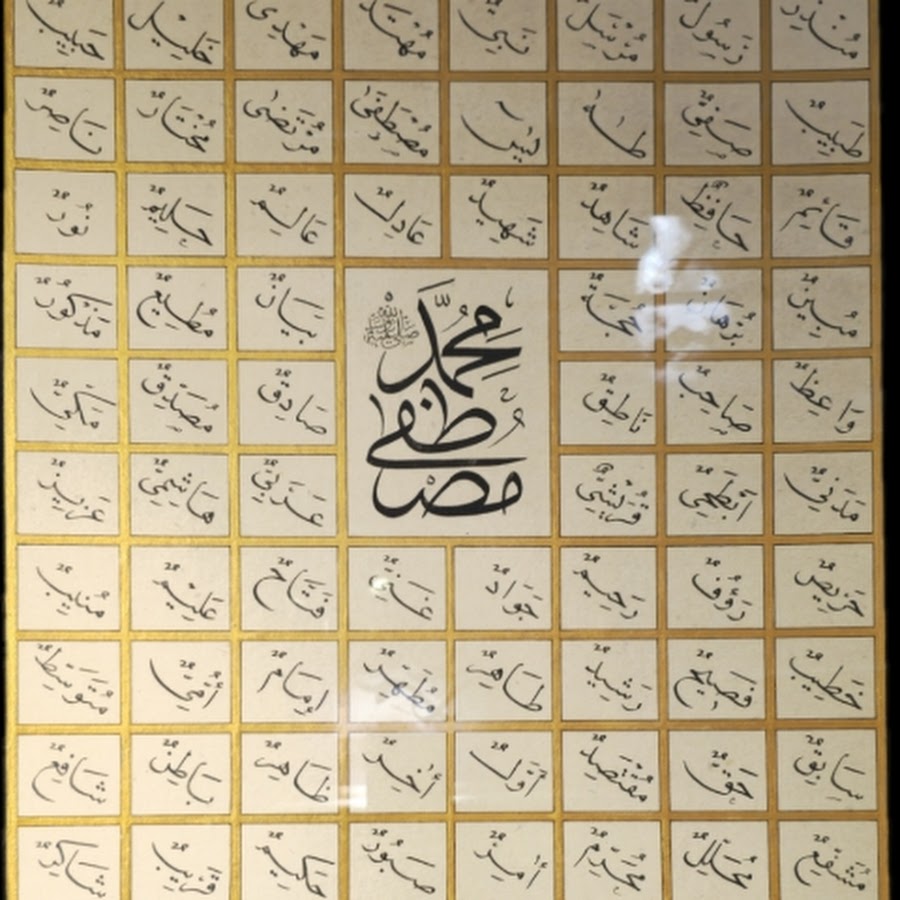 مُنْذِر رَسُول مُرْسَل نَبِيّ مُهْتَد مَهْدِى خَلِيل حَبِيب
طَبِيب صَفِيّ طٰهٰ يٰسٓ مُصْطَفَىٰ مُرْتَضَىٰ مُخْتَار نَاصِر
قَائِم حَافِظ شَاهِد شَهِيد عَادِل عَالِم حَلِيم نُور
مُبِين بُرْهَان حُجَّة بَيَان مُطِيع مَذْكُور
مُحَمَّد ﷺ
وَاعِظ صَاحِب نَاطِق صَادِق مُصَدِّق مَكِّيّ
مصطفى
مَدَنِيّ أَبْطَحِيّ قُرَيْشِيّ عَرَبِيّ هَاشِمِيّ عَزِيز
حَرِيص رَؤُف رَحِيم جَوَاد غَنِيّ فَتَّاح عَلِيم مُنِيب
خَطِيب فَصِيح رَشِيد طَاهِر مُطَهَّر إِمَام أُمِّيّ مُتَوَسِّط
سَابِق حَقّ مُقْتَصِد أَوَّل أٰخِر ظَاهِر بَاطِن شَافِع
مُشَفَّع مُحَلِّل مُحَرِّم أٰمِر صَبُور حَكِيم قَرِيب شَاكِر